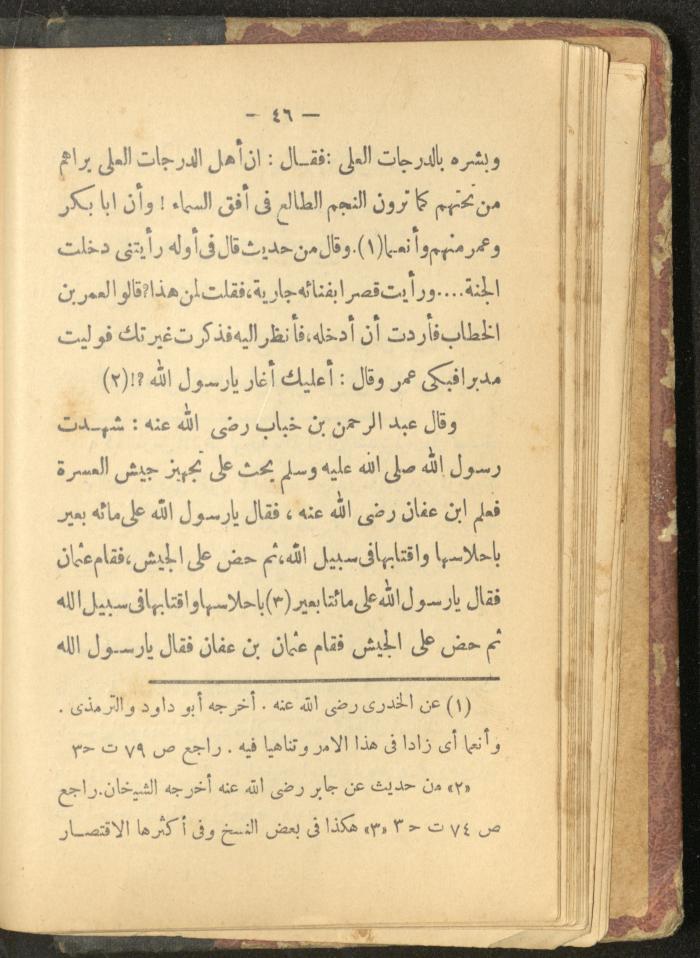 — ٤٦ —
وبشره بالدرجات العلى :فقال : ان أهل الدرجات العلى يراهم
من تحتهم كما ترون النجم الطالع فى أفق السماء ! وأن ابا بكر
وعمر منهم وأنعما(١). وقال من حديث قال فى أوله رأيتنى دخلت
الجنة.... ورأيت قصرا بفنائه جارية، فقلت لمن هذا؟ قالو العمر بن
الخطاب فأردت أن أدخله، فأنظر اليه فذكرت غيرتك فوليت
مدبرا فبكى عمر وقال : أعليك أغار يارسول الله ؟!(٢)
وقال عبد الرحمن بن خباب رضى الله عنه : شهدت
رسول الله صلى الله عليه وسلم يحث على تجهيز جيش العسرة
فعلم ابن عفان رضى الله عنه ، فقال يارسول الله على مائه بعير
باحلاسها واقتابها فى سبيل الله، ثم حض على الجيش، فقام عثمان
فقال يارسول الله على مائتا بعير (٣) باحلاسها واقتابها فى سبيل الله
ثم حض على الجيش فقام عثمان بن عفان فقال يارسول الله
(١) عن الخدرى رضى الله عنه . أخرجه أبو داود والترمذى .
وأنعما أى زادا فى هذا الامر وتناهيا فيه . راجع ص ٧٩ ت ح٣
«٢» من حديث عن جابر رضى الله عنه أخرجه الشيخان. راجع
ص ٧٤ ت ح ٣ «٣» هكذا فى بعض النسخ وفى أكثرها الاقتصار